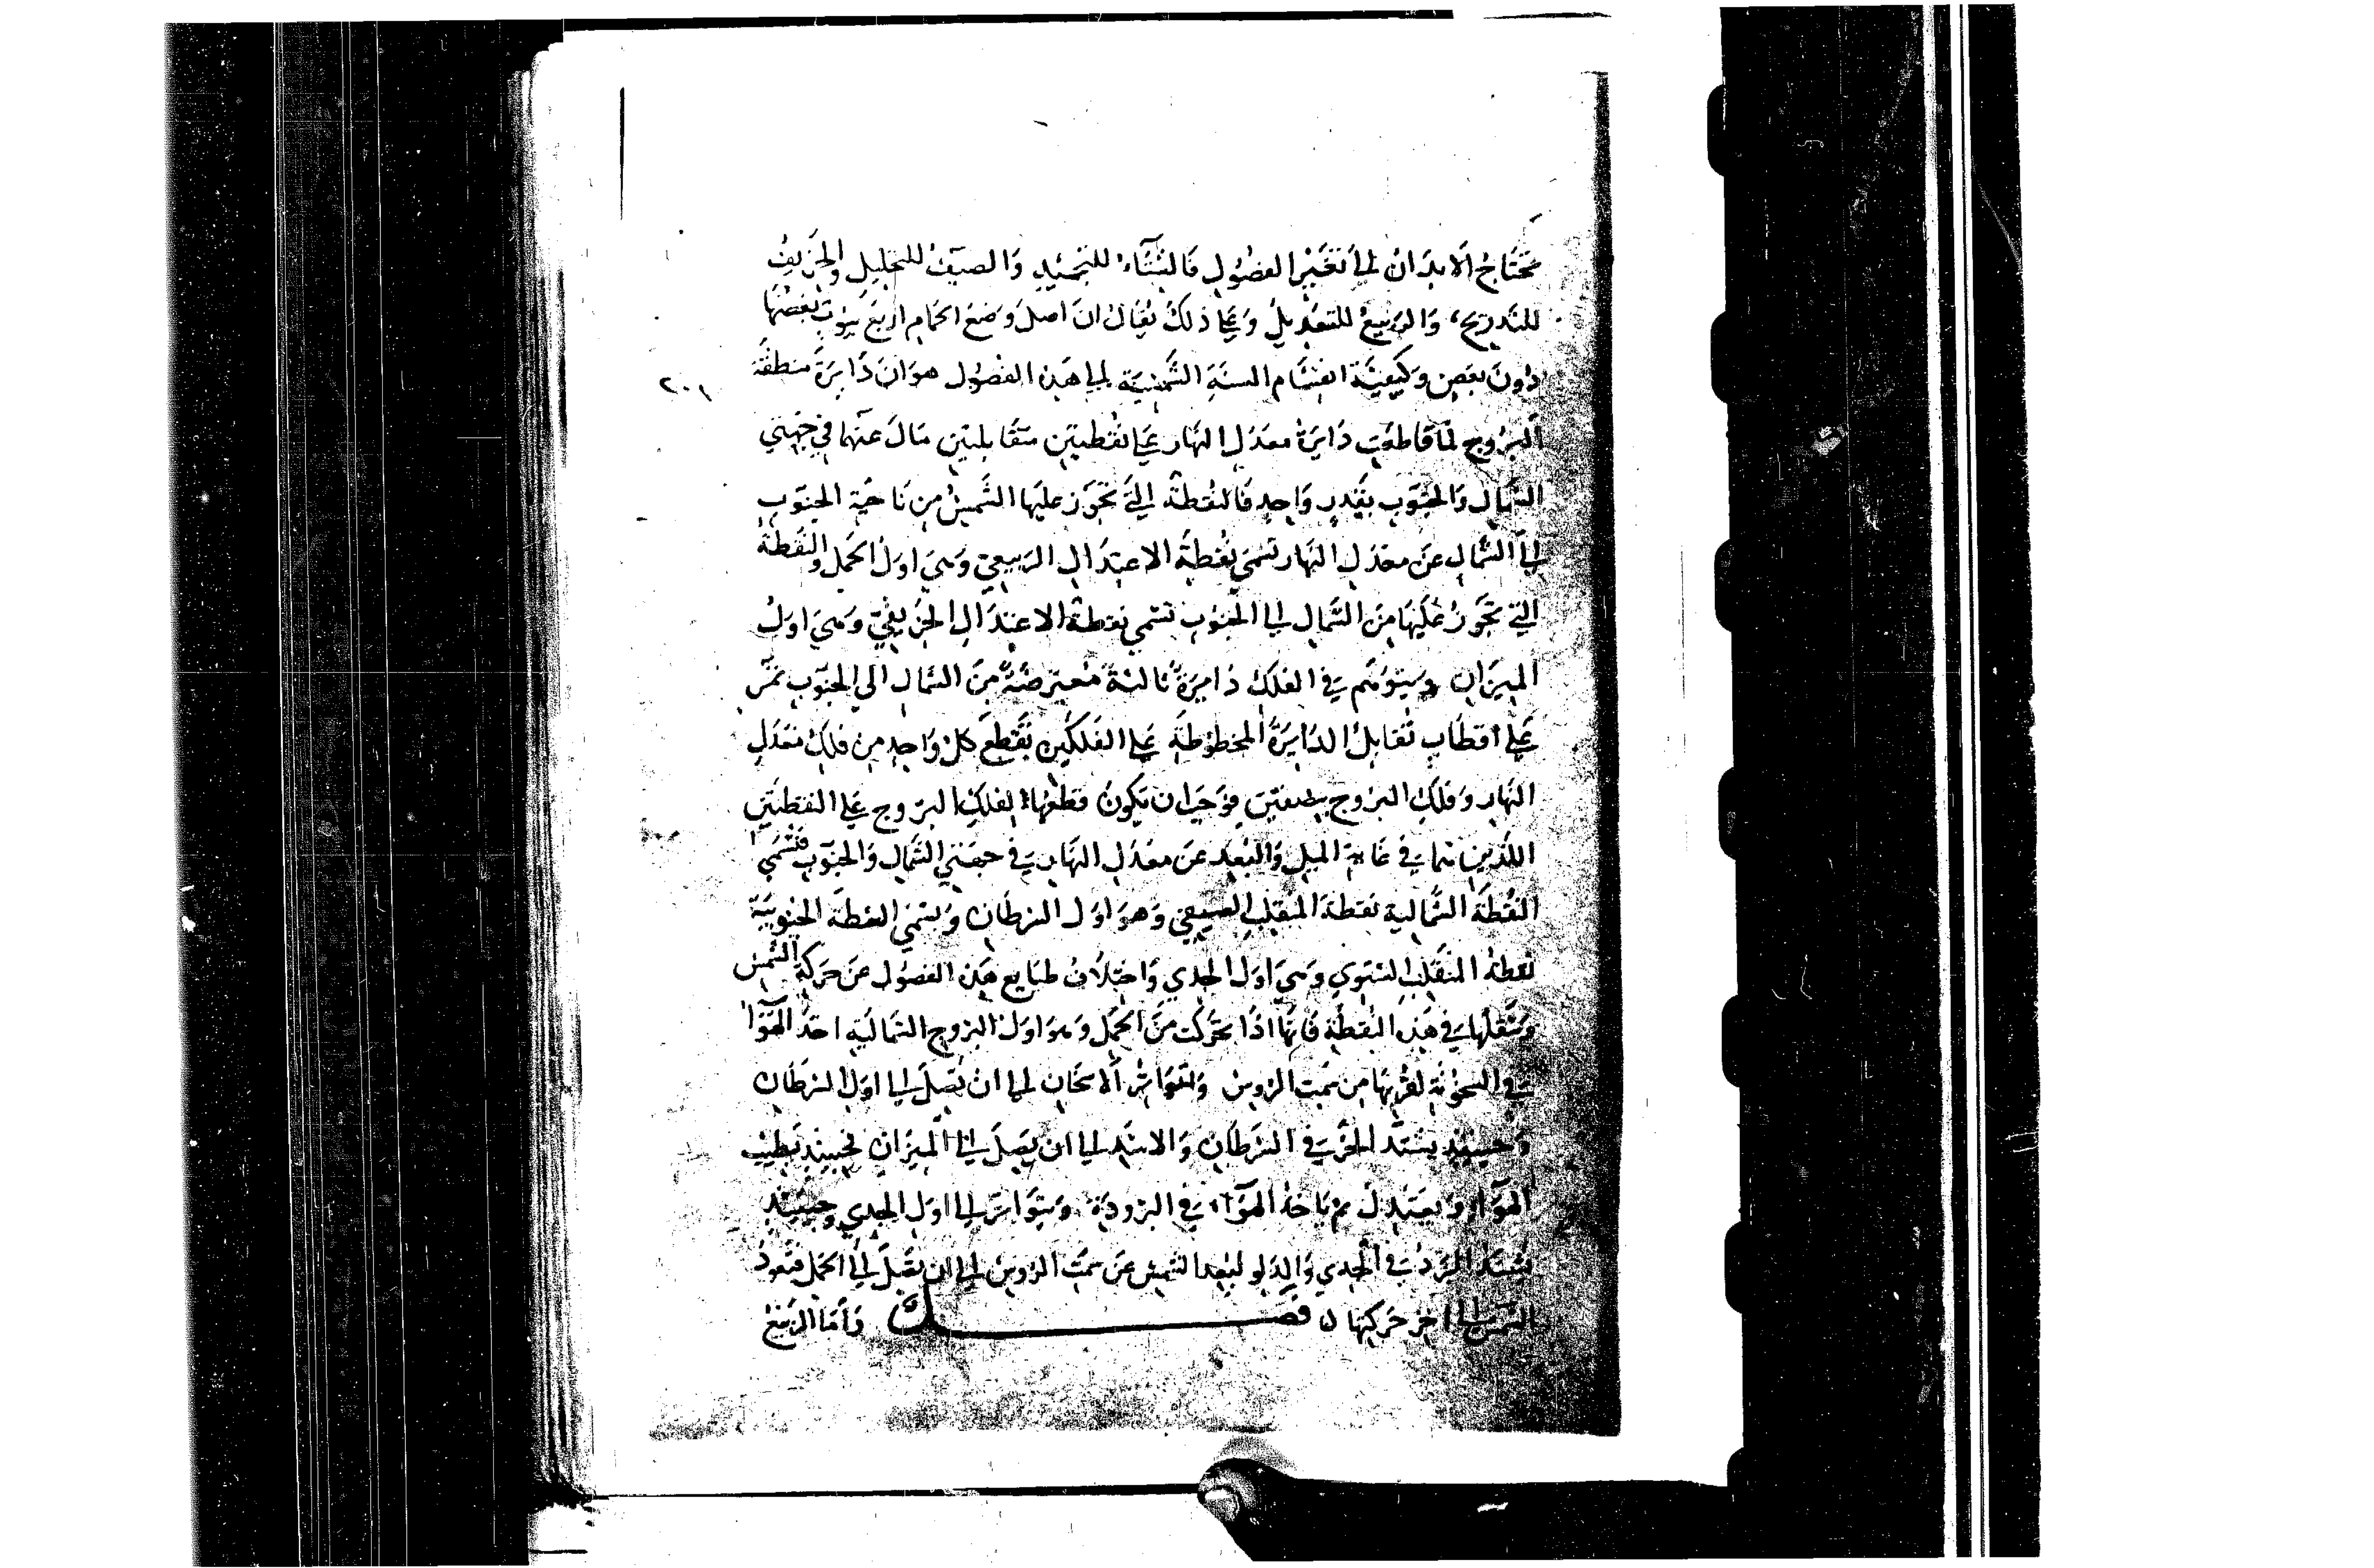 تحتاج الابدان الى تغير الفصول فالشتاء للتجميد والصيف للتحليل والخريف
للتدريج والربيع للتعديل وعلى ذلك يقال ان اصل وضع الحمام اربع بيوت بعضها
دون بعض وكيفية انقسام السنة الشمسية الى هذه الفصول هو ان دايرة منطقة
البروج لما قاطعت دايرة معدل النهار على نقطتين متقابلتين مال عنهما في جهتي
الشمال والجنوب بقدر واحد فالنقطة التي تجوز عليها الشمس من ناحية الجنوب
الى الشمال عن معدل النهار تسمى نقطة الاعتدال الربيعي وهي اول الحمل والنقطة
التي تجوز عليها من الشمال الى الجنوب تسمى نقطة الاعتدال الخريفي وهي اول
الميزان ويتوهم في الفلك دايرة ثالثة معترضة من الشمال الى الجنوب تمر
على اقطاب تقابل الدايرة المخطوطة على الفلكين تقطع كل واحد من فلك معدل
النهار وفلك البروج بنصفين فوجب ان يكون قطعها لفلك البروج على النقطتين
اللذين هما في غاية الميل والبعد عن معدل النهار في جهتي الشمال والجنوب فتسمى
النقطة الشمالية نقطة المنقلب الصيفي وهو اول السرطان وتسمى النقطة الجنوبية
نقطة المنقلب الشتوي وهي اول الجدي واختلاف طبايع هذه الفصول عن حركة الشمس
وتنقلها في هذه النقطة فانها اذا تحركت من الحمل وهو اول البروج الشمالية اخذ الهوا
في السخونة لقربها من سمت الروس وتتواتر الاسخان الى ان تصل الى اول السرطان
وحينئذ يشتد الحر في السرطان والاسد الى ان يصل الى الميزان فحينئذ يطيب
الهواء ويعتدل ثم ياخذ الهواء في البرودة ويتواتر الى اول الجدي وحينئذ
يشتد البرد في الجدي والدلو لبعد الشمس عن سمت الروس الى ان تصل الى الحمل فتعود
الشمس الى اخر حركتها ن فصل واما الربيع
٢٠١